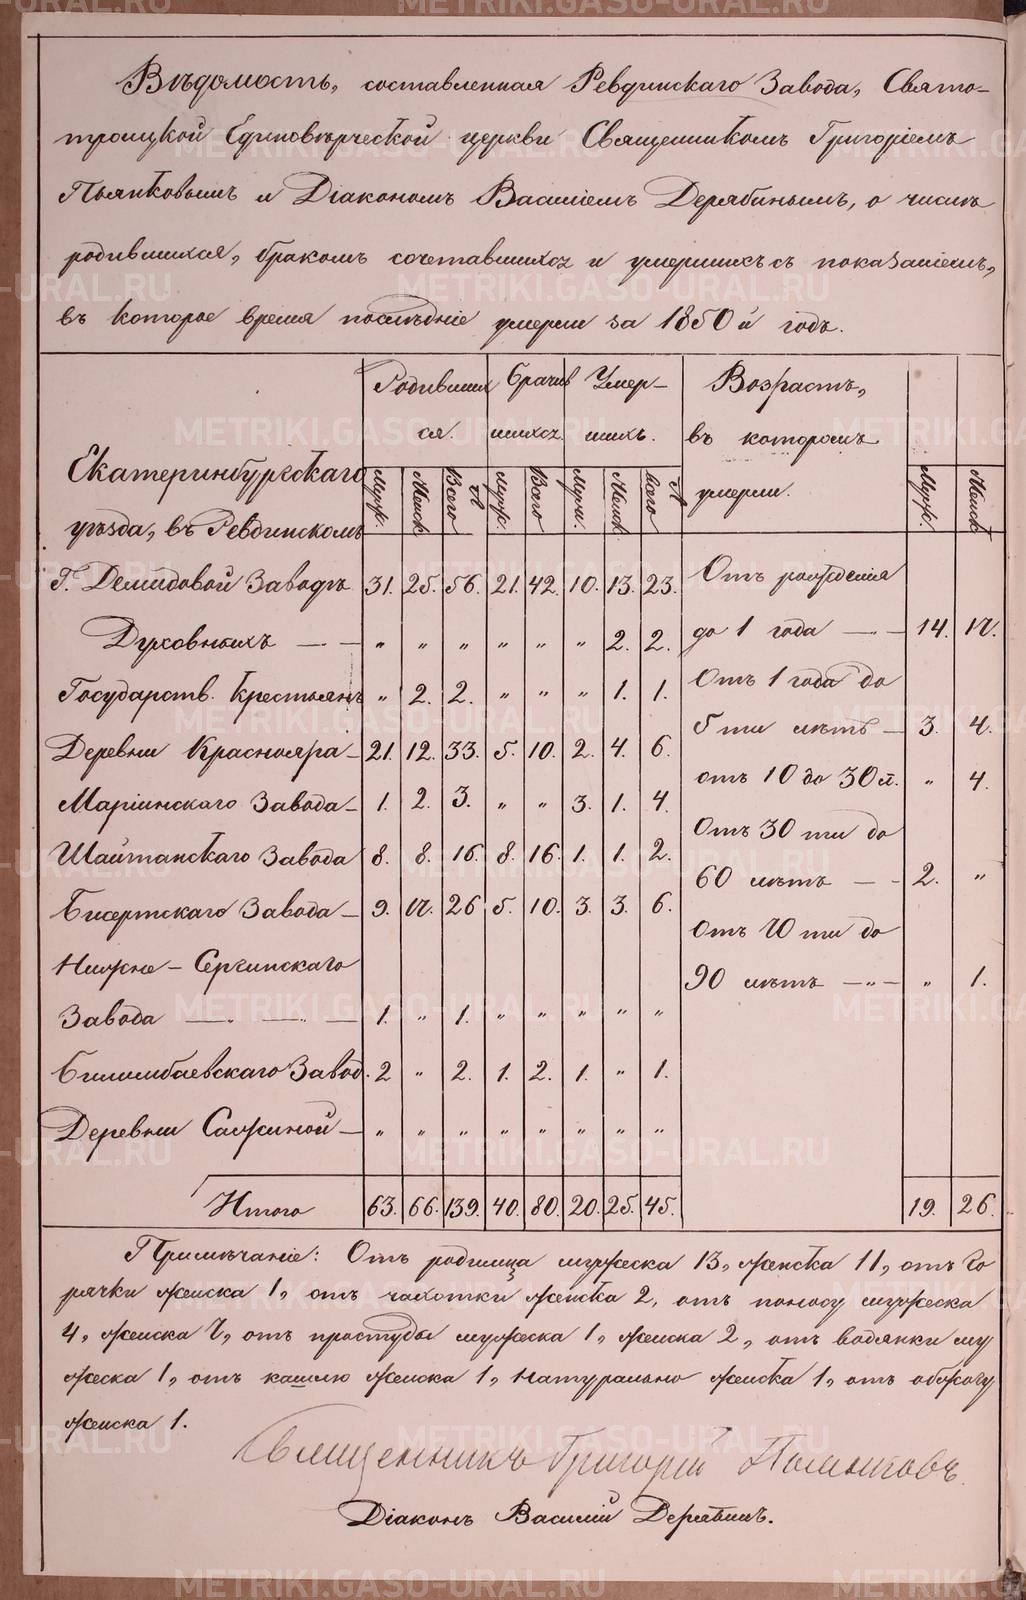 Вѣдомость, составленная Ревдинскаго Завода, Свято-
троицкой Единовѣрческой церкви Священникомъ Григоріемъ
Пьянковымъ и Діакономъ Василіемъ Дерябинымъ, о числѣ
родившихся, бракомъ сочетавшихся и умершихъ съ показаніемъ,
въ которое время послѣдніе умерли за 1850й годъ.
Родивших Брачив Умер- Возрастъ,
ся. шихся шихъ. въ которомъ
Екатеринбургскаго Муж. Женск Всего Муж. Всего Муж. Женск Всего умерли. Муж. Женск
уѣзда, въ Ревдинскомъ
Г. Демидовой Заводѣ 31. 25. 56. 21. 42. 10. 13. 23. Отъ рожденія
Духовныхъ — „ „ „ „ „ „ 2. 2. до 1 года — 14. 17.
Государств. Крестьянъ „ 2. 2. „ „ „ 1. 1. Отъ 1 года до
Деревни Краснояра - 21. 12. 33. 5. 10. 2. 4. 6. 5 ти лѣтъ - 3. 4.
Маріинскаго Завода - 1. 2. 3. „ „ 3. 1. 4. отъ 10 до 30 л. „ 4.
Шайтанскаго Завода 8. 8. 16. 8. 16. 1. 1. 2. Отъ 30 ти до
Бисертскаго Завода - 9. 17. 26 5. 10. 3. 3. 6. 60 лѣтъ — 2. „
Нижне-Сергинскаго Отъ 70 ти до
Завода — 1. „ 1. „ „ „ „ „ 90 лѣтъ — „ 1.
Билимбаевскаго Завод. 2 „ 2. 1. 2. 1. „ 1.
Деревни Сажиной - „ „ „ „ „ „ „ „
Итого 63. 66. 139. 40. 80. 20. 25. 45. 19. 26.
Примѣчаніе: Отъ родимца мужеска 13, женска 11, отъ го
рячки женска 1, отъ чахотки женска 2, отъ поносу мужеска
4, женска 7, отъ простуды мужеска 1, женска 2, отъ водянки му
жеска 1, отъ кашлю женска 1, натурально женска 1, отъ обжогу
женска 1.
Священникъ Григорій Пьянковъ
Діаконъ Василій Дерябинъ.
METRIKI.GASO-URAL.RU